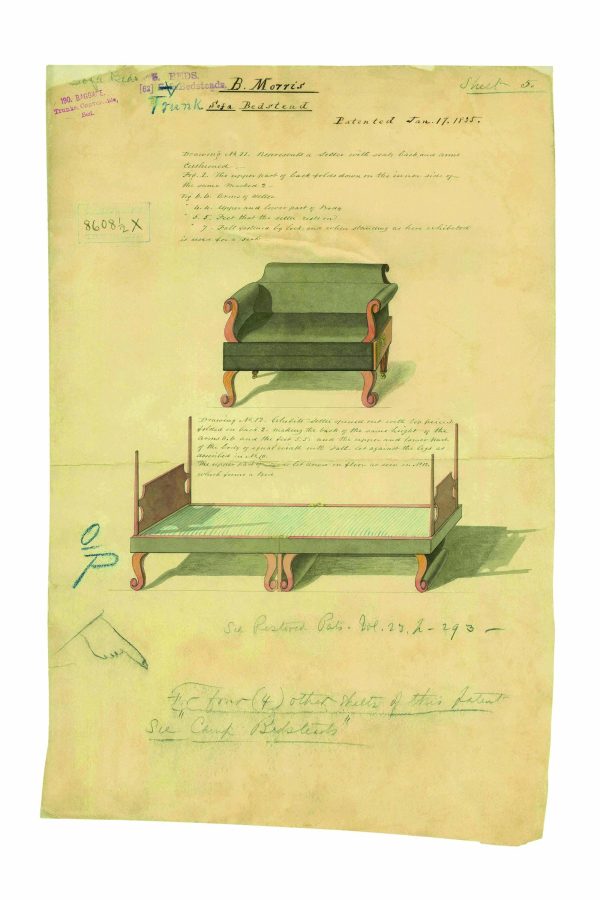 Sofa Beds
5. BEDS.
[82] Bedsteads.
190. BAGGAGE,
Trunks, Convertible,
Bed.
Trunk
B. Morris
Sofa Bedstead
Sheet 5.
Patented Jan. 17. 1835.
Drawing No. 11. Represents a Settee with seat, back and arms
Cushioned
Fig. 2. The upper part of back folds down on the inner side of
the same Marked 3
Fig 6.6. Arms of Settee
" 4.4. Upper and lower part of Body
" 5.5. Feet that the settee rests on
" 7. Fall fastened by lock and when standing as here exhibited
is used for a seat.
8608½ X
Drawing No. 12. Exhibits Settee opened out with top piece
folded in back 2. making the back of the same height of the
Arms 6.6 and the feet 5.5. and the upper and lower part
of the body of equal width with fall let against the legs as
described in No. 10.
The upper part of is let down on floor as seen in No.
which forms a bed.
O/P
See Restored Pats. Vol. 23, p - 293 -
For four (4) other sheets of this patent
See "Camp Bedsteads"